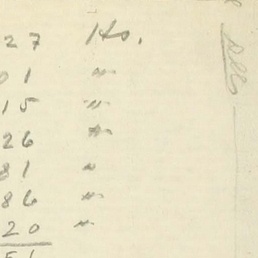 27 Ho.
01 "
15 "
26 "
81 "
86 "
20 "
51